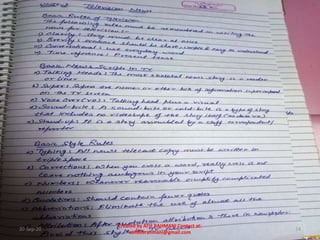 Unit-4 Television News
Basic Rules of Television
The following rules must be remembered in writing the
news for television:-
i) Clarity: They must be clear at once
ii) Brevity: Sentence should be short, simple & easy to understand
iii) Conversational: use everyday words
iv) Time reference: Present tense
Basic News Scripts in TV
a) Talking Heads: The most skeletal news story is a reader
or liner
b) Supers: Supers are names or other bit of information superimposed
on the TV screen
c) Voice Over (VO): Talking head plus a visual
d) Sound-bite: A sound bite or cold-bite is a type of story
that includes no videotape of the story itself
e) Stand up: It is a story assembled by a staff correspondent/
reporter
Basic Style Rules
i) Typing: All news release copy must be written in
script space
ii) Corrections: When you cross a word, really cross it out
Leave nothing ambiguous in your script
c) Numbers: Whenever reasonable simplify complicated
numbers
d) Should contain fewer quotes
e) Abbreviations: Eliminate the use of almost all the
abbreviations
f) Attribution: attribution & there in newspaper
30-Sep-20
Created by ATIF RAHMANI Contact at:
@gmail.com
24